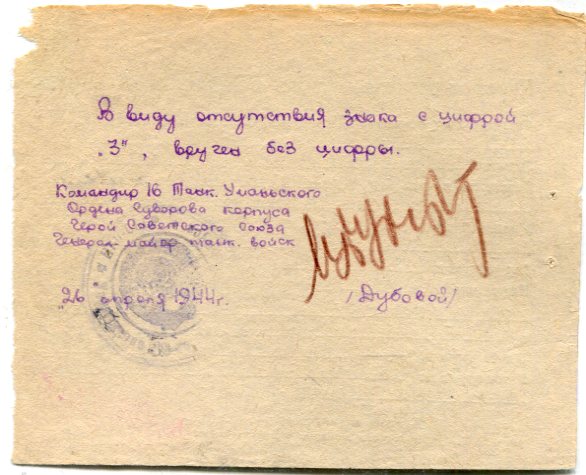 В виду отсутствия знака с цифрой
„3", вручен без цифры.
Командир 16 Танк. Уманьского
Ордена Суворова корпуса
Герой Советского Союза
Генерал-майор танк. войск
„26 апреля 1944г.
/Дубовой/